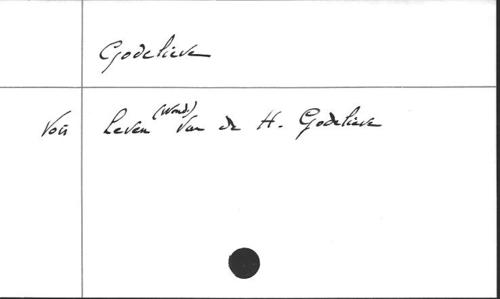 Godelieve
Voir Leven (Wond.) van de H. Godelieve